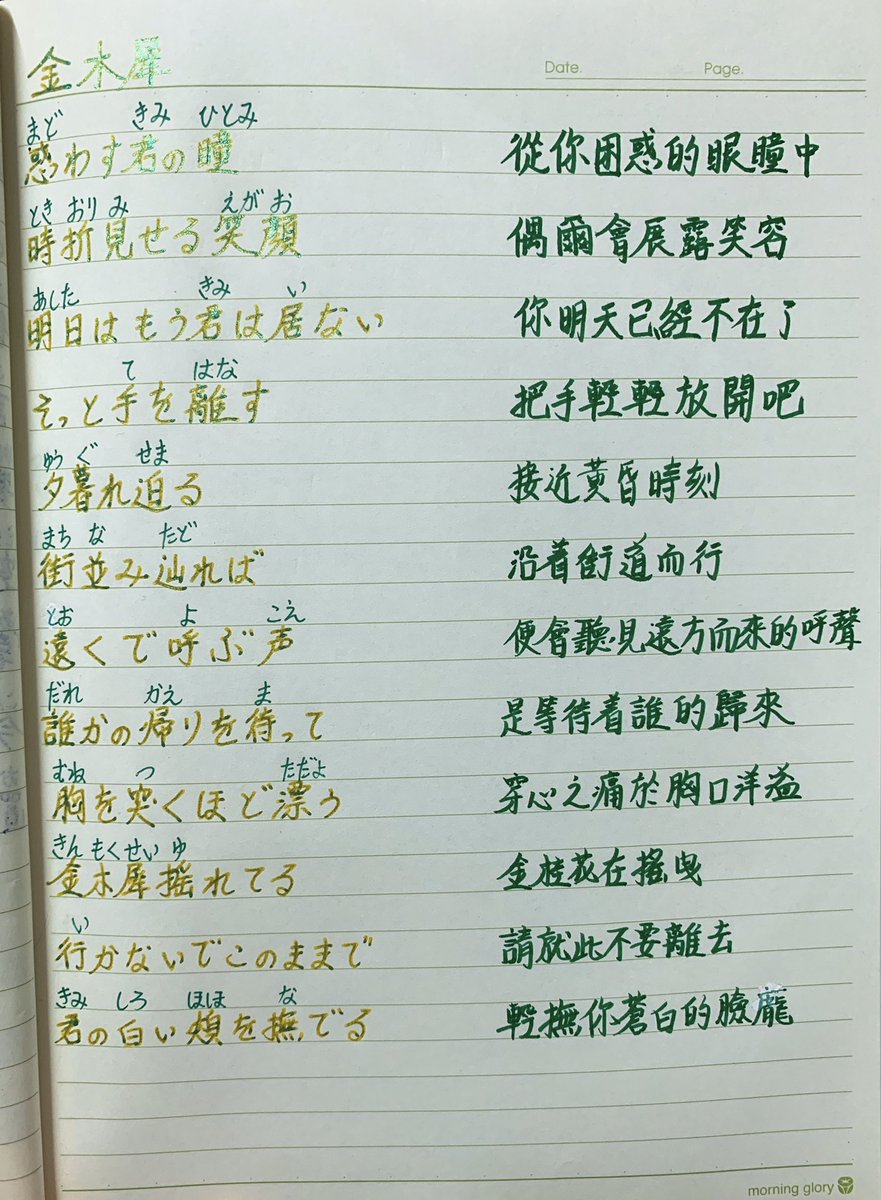 金木犀
Date. Page.
まど きみ ひとみ
惑わす君の瞳 從你困惑的眼瞳中
とき おり み えが お
時折見せる笑顔 偶爾會展露笑容
あした きみ い
明日はもう君は居ない 你明天已經不在了
て はな
そっと手を離す 把手輕輕放開吧
ゆう ぐ せま
夕暮れ迫る 接近黃昏時刻
まち な たど
街並み辿れば 沿着街道而行
とお よ こえ
遠くで呼ぶ声 便會聽見遠方而來的呼聲
だれ かえ ま
誰かの帰りを待って 是等待着誰的歸來
むね つ ただよ
胸を突くほど漂う 穿心之痛於胸口洋溢
きん もくせい ゆ
金木犀揺れてる 金桂花在搖曳
い
行かないでこのままで 請就此不要離去
きみ しろ ほほ な
君の白い頬を撫でる 輕撫你蒼白的臉龐
morning glory